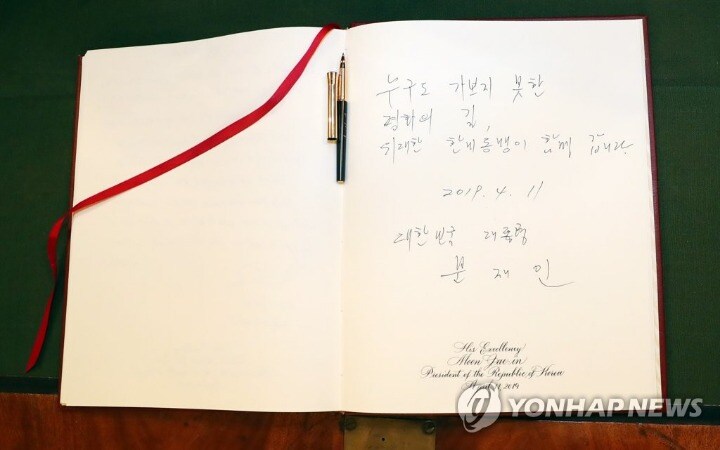 누구도 가보지 못한
평화의 길,
위대한 한미동맹이 함께 갑니다.
2019. 4. 11
대한민국 대통령
문 재 인
His Excellency
Moon Jae-in
President of the Republic of Korea
April 11, 2019
YONHAPNEWS